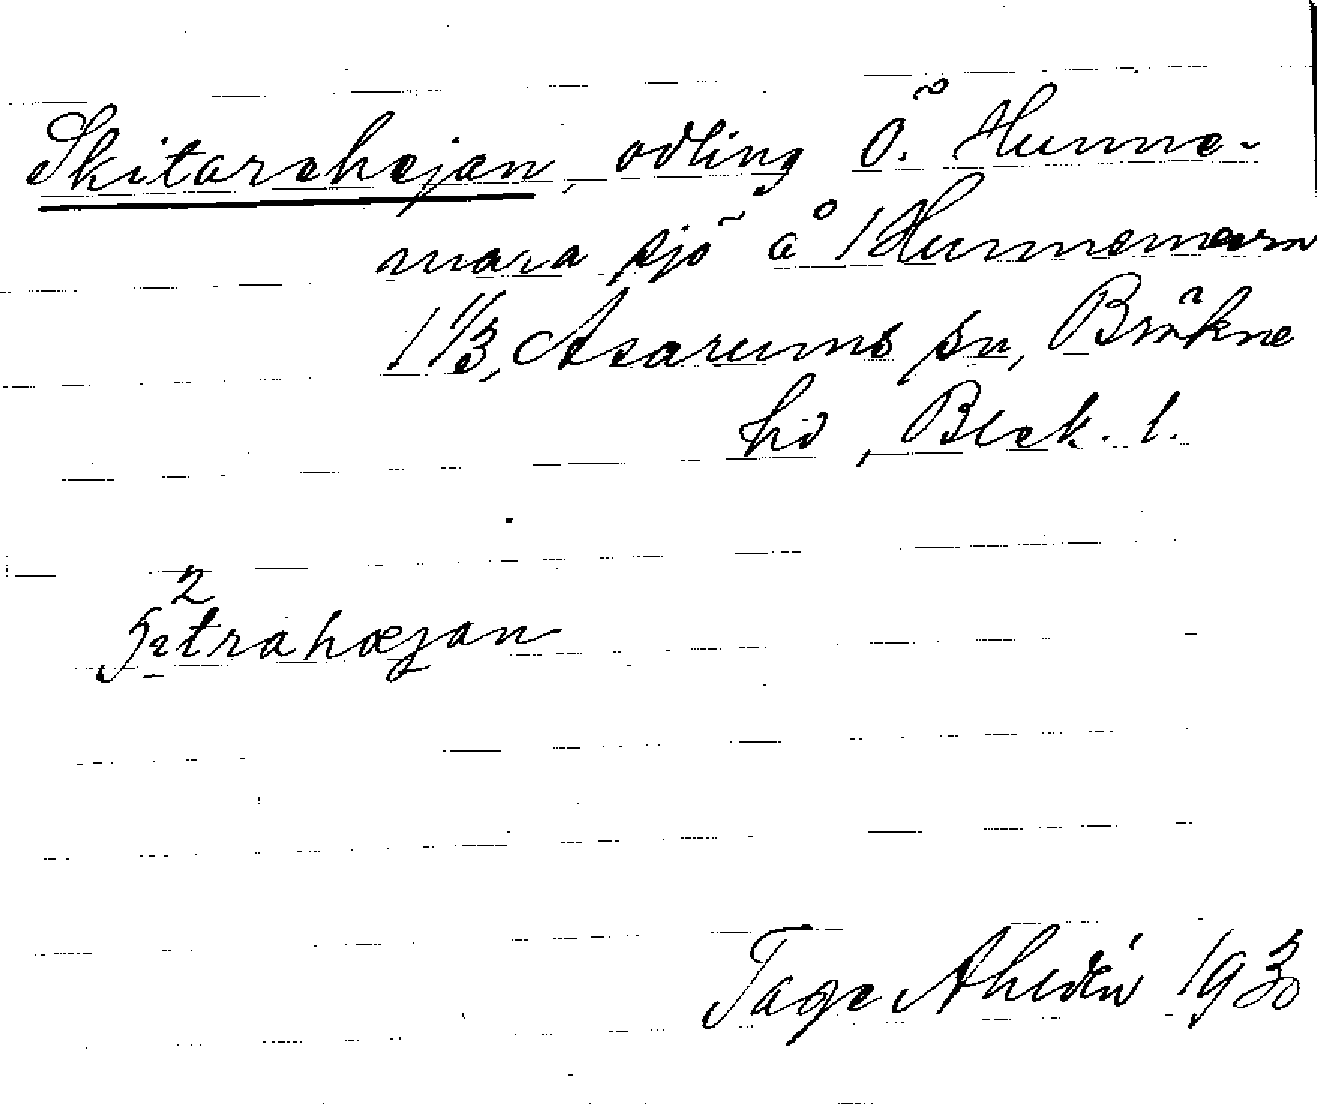 Skitarehejan, odling Ö. Hunne-
mara sjö å Hunnemara
1 1/3, Asarums sn, Bräkne
hd, Blek. l.
2
trahæjan
Tage Ahldén 1930